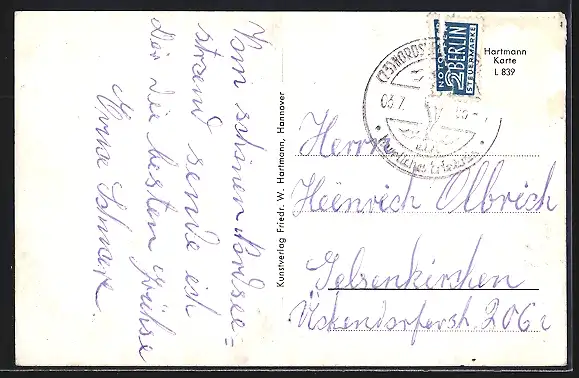 Vom schönen Nordsee-
strand sende ich
dir die besten Grüße
Kunstverlag Friedr. W. Hartmann, Hannover
NOTOPFER
2 BERLIN
STEUERMARKE
Hartmann
Karte
L 839
(23) NORD
03.7.
Herrn
Heinrich Olbrich
Gelsenkirchen
Ückendorferstr. 206 c